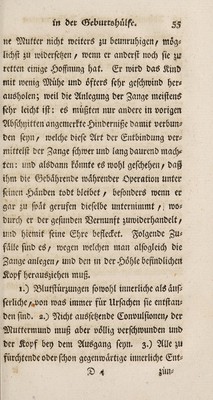 in der Geburtshülfe. 55
ne Mutter nicht weiters zu beunruhigen, mög-
lichst zu widersetzen, wenn er anderst noch sie zu
retten einige Hoffnung hat. Er wird das Kind
mit wenig Mühe und öfters sehr geschwind her-
ausholen; weil die Anlegung der Zange meistens
sehr leicht ist: es müßten nur andere in vorigen
Abschnitten angemerkte Hinderniße damit verbun-
den seyn, welche diese Art der Entbindung ver-
mittelst der Zange schwer und lang daurend mach-
ten: und alsdann könnte es wohl geschehen, daß
ihm die Gebährende während der Operation unter
seinen Händen todt bleibet, besonders wenn er
gar zu spät gerufen dieselbe unternimmt, wo-
durch er der gesunden Vernunft zuwiderhandelt,
und hiemit seine Ehre beflecket. Folgende Zu-
fälle sind es, wegen welchen man alsogleich die
Zange anlegen, und den in der Höhle befindlichen
Kopf herausziehen muß.
1.) Blutstürzungen sowohl innerliche als äus-
serliche, von was immer für Ursachen sie entstan-
den sind. 2.) Nicht aussehende Convulsionen, der
Muttermund muß aber völlig verschwunden und
der Kopf bey dem Ausgang seyn. 3.) Alle zu
fürchtende oder schon gegenwärtige innerliche Ent-
D 4 zün-